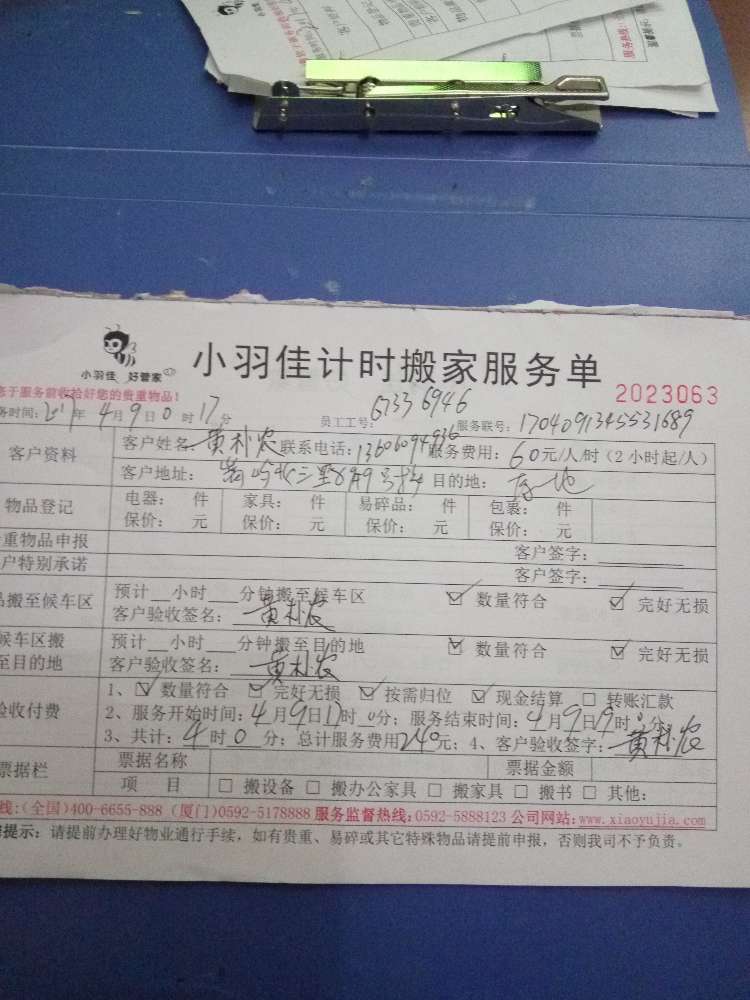 小羽佳 好管家
小羽佳计时搬家服务单
2023063
于服务前收拾好您的贵重物品!
务时间: 2017年 4月 9日 0时 17分 员工工号: 67336946 服务联号: 1704091345531689
客户资料 客户姓名: 黄朴农 联系电话: 13606094936 服务费用: 60元/人/时(2小时起/人)
客户地址: 目的地:
物品登记 电器: 件 家具: 件 易碎品: 件 包裹: 件
保价: 元 保价: 元 保价: 元 保价: 元
重物品申报 客户签字:
户特别承诺 客户签字:
品搬至候车区 预计 小时 分钟搬至候车区 ☑ 数量符合 ☑ 完好无损
客户验收签名: 黄朴农
候车区搬至目的地 预计 小时 分钟搬至目的地 ☑ 数量符合 ☑ 完好无损
客户验收签名: 黄朴农
验收付费 1、☑ 数量符合 ☑ 完好无损 ☑ 按需归位 ☑ 现金结算 □ 转账汇款
2、服务开始时间: 4月9日17时0分; 服务结束时间: 4月9日19时0分
3、共计: 4时 0分; 总计服务费用240元; 4、客户验收签字: 黄朴农
票据栏 票据名称 票据金额
项 目 □ 搬设备 □ 搬办公家具 □ 搬家具 □ 搬书 □ 其他:
线:(全国)400-6655-888 (厦门)0592-5178888 服务监督热线:0592-5888123 公司网站:www.xiaoyujia.com
提示: 请提前办理好物业通行手续, 如有贵重、易碎或其它特殊物品请提前申报, 否则我司不予负责。